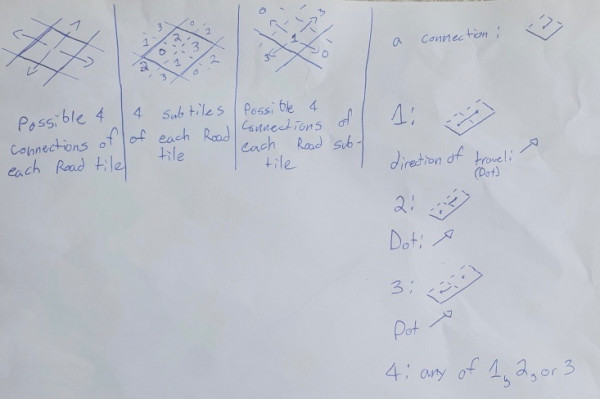 1 2 0 1
3 0 3 1
2 1 2
3 0
0 3
1
3 0
Possible 4
connections of
each Road tile
4 subtiles
of each Road
tile
Possible 4
Connections of
each Road sub-
tile
a connection:
1:
direction of travel:
(Dot)
2:
Dot:
3:
Dot
4: any of 1, 2, or 3